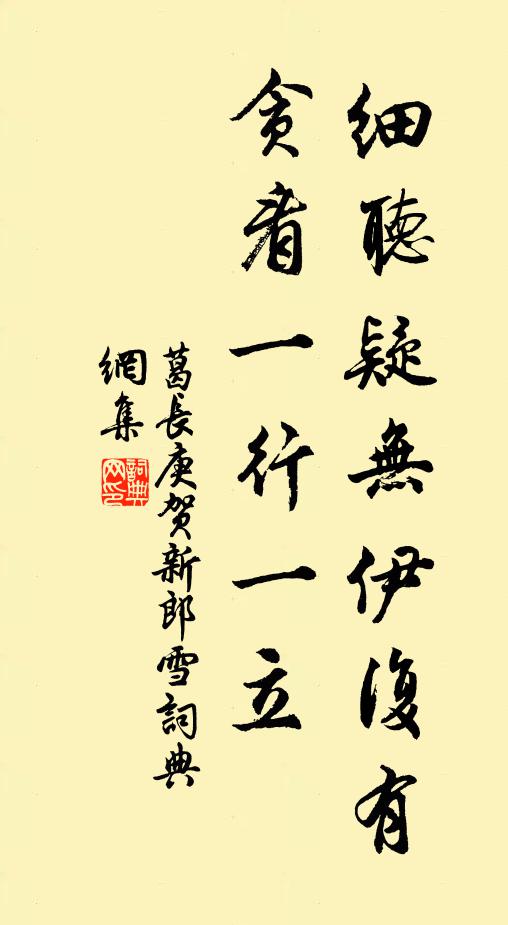 細聽疑無伊復有
貪看一行一立
葛長庚賀新郎雪詞典
網集
詞典網印